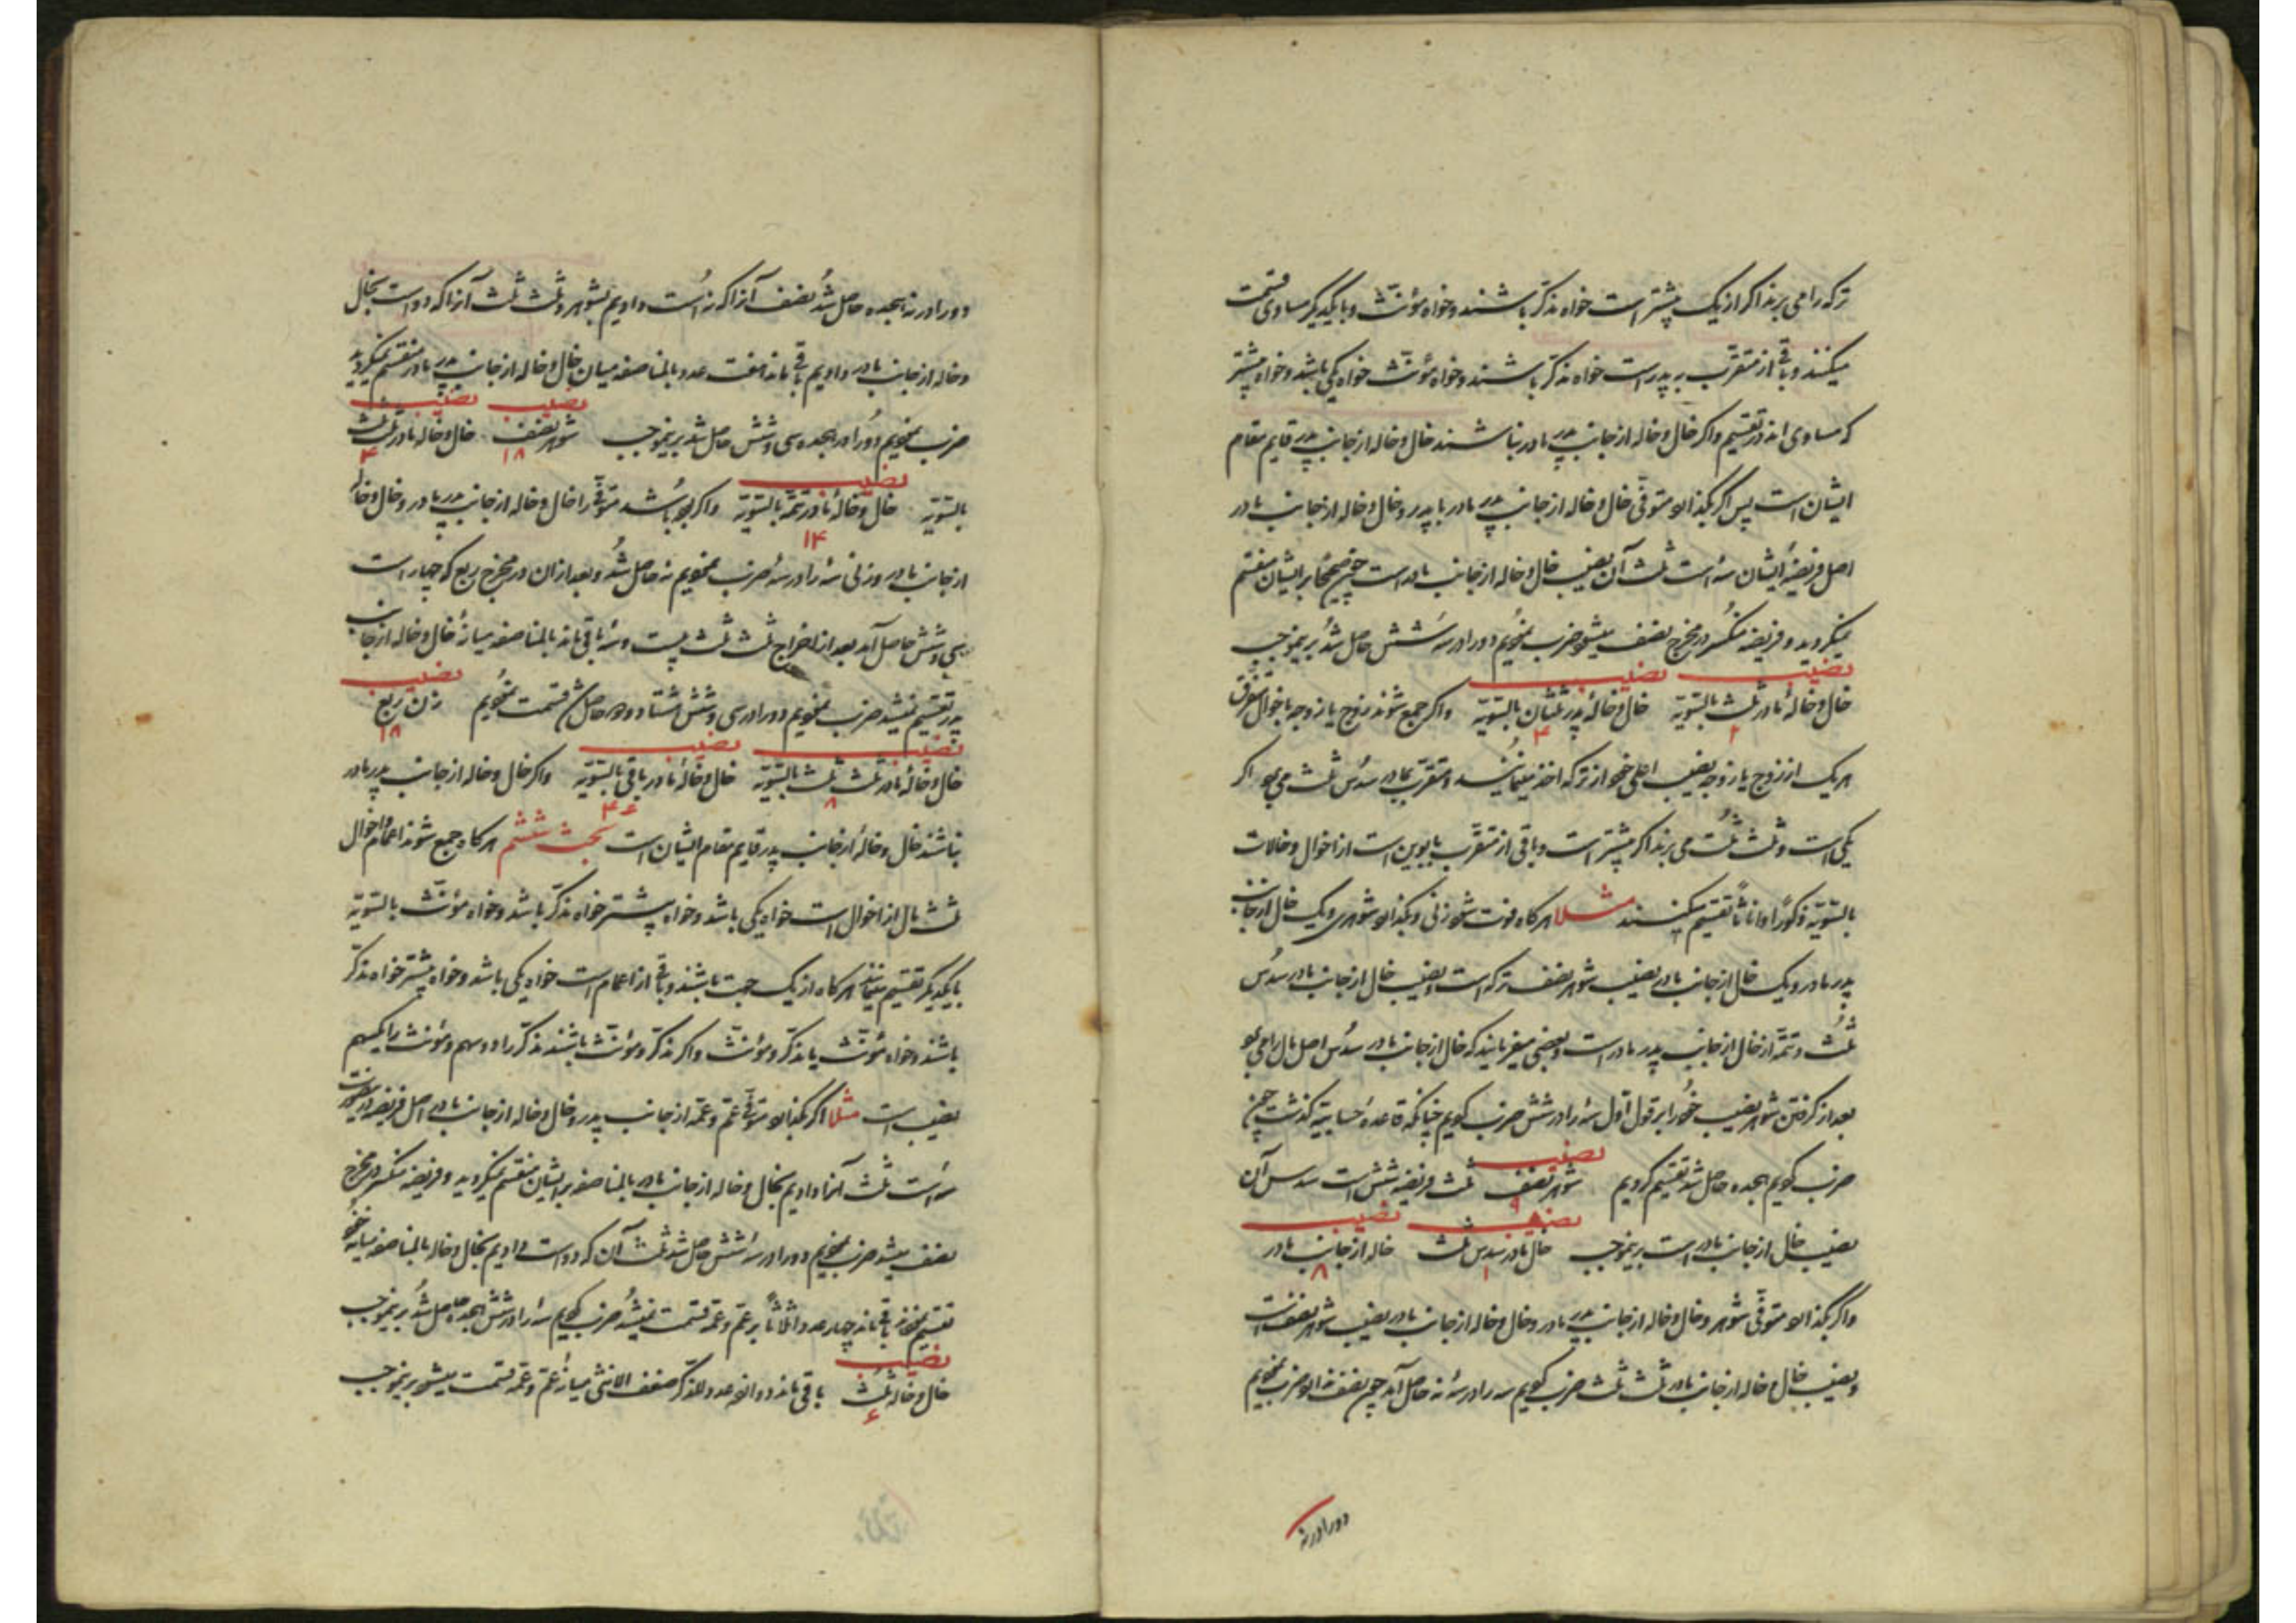 ترکه را می برند اگر از یک بیشتر است خواه مذکّر باشند و خواه مؤنّث و با یکدیگر مساوی قسمت
میکنند و باقی از متقرّب بپدر است خواه مذکّر باشند و خواه مؤنّث خواه یکی باشد و خواه بیشتر
که مساوی اند در تقسیم و اگر خال و خاله از جانب پدر مادر نباشند خال و خاله از جانب پدر قایم مقام
ایشان است پس اگر بگذارد متوفّی خال و خاله از جانب پدر مادر یا پدر و خال و خاله از جانب مادر
اصل فریضهٔ ایشان سه است ثلث آن نصیب خال و خاله از جانب مادر است چون صحیحًا بر ایشان منقسم
نمیگردید و فریضه منکسر در مخرج نصف میشود ضرب نمودیم دو را در سه شش حاصل شد برینموجب
نصیب نصیب
خال و خالهٔ مادر ثلث بالسّویّه خال و خالهٔ پدر ثلثان بالسّویّه و اگر جمع شوند زوج یا زوجه با خوال متفرّق
۲ ۴
هر یک از زوج یا زوجه نصیب اعلی خود از ترکه اخذ مینمایند و متقرّب بمادر سدس ثلث می برد اگر
یکی است و ثلث ثلث می برند اگر بیشتر است و باقی از متقرّب بابوین است از اخوال و خالات
بالسّویّه ذکورًا و اناثًا تقسیم میکنند مثلا هر گاه فوت شود زنی و بگذارد شوهری و یک خال از جانب
پدر مادر و یک خال از جانب مادر نصیب شوهر نصف ترکه است و نصیب خال از جانب مادر سدس
ثلث و تتمّه از خال از جانب پدر مادر است و بعضی میفرمایند که خال از جانب مادر سدس اصل مال را می برد
بعد از گرفتن شوهر نصیب خود را بر قول اوّل سه را در شش ضرب کردیم چنانکه قاعدهٔ حسابیه گذشت چون
نصیب
ضرب کردیم هجده حاصل شد تقسیم کردیم شوهر نصف ثلث فریضه شش است سدس آن
۹
نصیب نصیب
نصیب خال از جانب مادر است برینموجب خال مادر سدس ثلث خاله از جانب مادر
۱ ۸
و اگر بگذارد متوفّی شوهر و خال و خاله از جانب پدر مادر و خال و خاله از جانب مادر نصیب شوهر نصف است
و نصیب خال و خاله از جانب مادر ثلث ثلث ضرب کردیم سه را در سه نه حاصل آمد چون نصف ندارد ضرب نمودیم
دو را در نه
دو را در نه هجده حاصل شد نصف آنرا که نه است دادیم بشوهر و ثلث ثلث آنرا که دو است بخال
و خاله از جانب مادر دادیم باقی ماند هفت عدد بالمناصفه میان خال و خاله از جانب پدر مادر منقسم نمیگردید
نصیب نصیب
ضرب نمودیم دو را در هجده سی و شش حاصل شد برینموجب شوهر نصف خال و خاله مادر ثلث ثلث
۱۸ ۴
نصیب
بالسّویّه خال و خالهٔ مادر تتمّه بالسّویّه و اگر بوده باشد متوفّی را خال و خاله از جانب پدر مادر و خال و خاله
۱۴
از جانب مادر و زنی سه را در سه ضرب نمودیم نه حاصل شد و بعد از ان در مخرج ربع که چهار است
سی و شش حاصل آمد بعد از اخراج ثلث ثلث بیست و سه باقی ماند بالمناصفه میانهٔ خال و خاله از جانب
نصیب
پدر تقسیم نمیشد ضرب نمودیم دو را در سی و شش هشتاد و دو حاصل شد قسمت نمودیم زن ربع
۱۸
نصیب نصیب
خال و خالهٔ مادر ثلث ثلث بالسّویّه خال و خالهٔ مادر باقی بالسّویّه و اگر خال و خاله از جانب پدر مادر
۸ ۴۶
نباشند خال و خاله از جانب پدر قایم مقام ایشان است بحث ششم هر گاه جمع شوند اعمام و اخوال
ثلث مال از اخوال است خواه یکی باشد و خواه بیشتر خواه مذکّر باشد و خواه مؤنّث بالسّویّه
با یکدیگر تقسیم مینمایند هر گاه از یک جهت باشند و باقی از اعمام است خواه یکی باشد و خواه بیشتر خواه مذکّر
باشند و خواه مؤنّث یا مذکّر و مؤنّث و اگر مذکّر و مؤنّث باشند مذکّر را دو سهم و مؤنّث را یکسهم
نصیب است مثلا اگر بگذارد متوفّی عمّ و عمّه از جانب پدر و خال و خاله از جانب مادر اصل فریضه درینصورت
سه است ثلث آنرا دادیم بخال و خاله از جانب مادر بالمناصفه بر ایشان منقسم نمیگردید و فریضه منکسر در مخرج
نصف میشد ضرب نمودیم دو را در سه شش حاصل شد ثلث آن که دو است دادیم بخال و خاله بالمناصفه میانه خود
تقسیم نمودند باقی ماند چهار عدد اثلاثًا بر عمّ و عمّه قسمت نمیشد ضرب کردیم سه را در شش هجده حاصل شد برینموجب
نصیب
خال و خاله ثلث باقی ماند دوازده عدد للذّکر ضعف الانثی میانهٔ عمّ و عمّه قسمت میشود برینموجب
۶